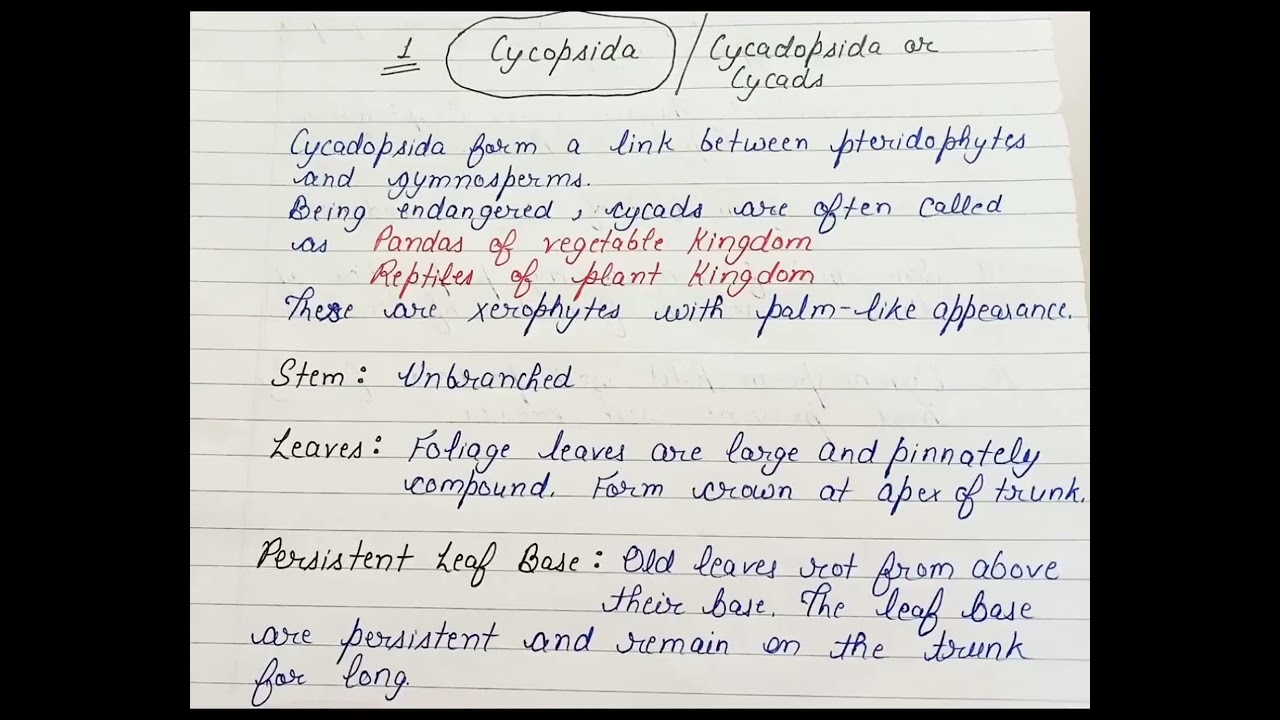 1 Cycopsida / Cycadopsida or
Cycads
Cycadopsida form a link between pteridophytes
and gymnosperms.
Being endangered, cycads are often called
as Pandas of vegetable Kingdom
Reptiles of plant Kingdom
These are xerophytes with palm-like appearance.
Stem: Unbranched
Leaves: Foliage leaves are large and pinnately
compound. Form crown at apex of trunk.
Persistent Leaf Base: Old leaves rot from above
their base. The leaf base
are persistent and remain on the trunk
for long.